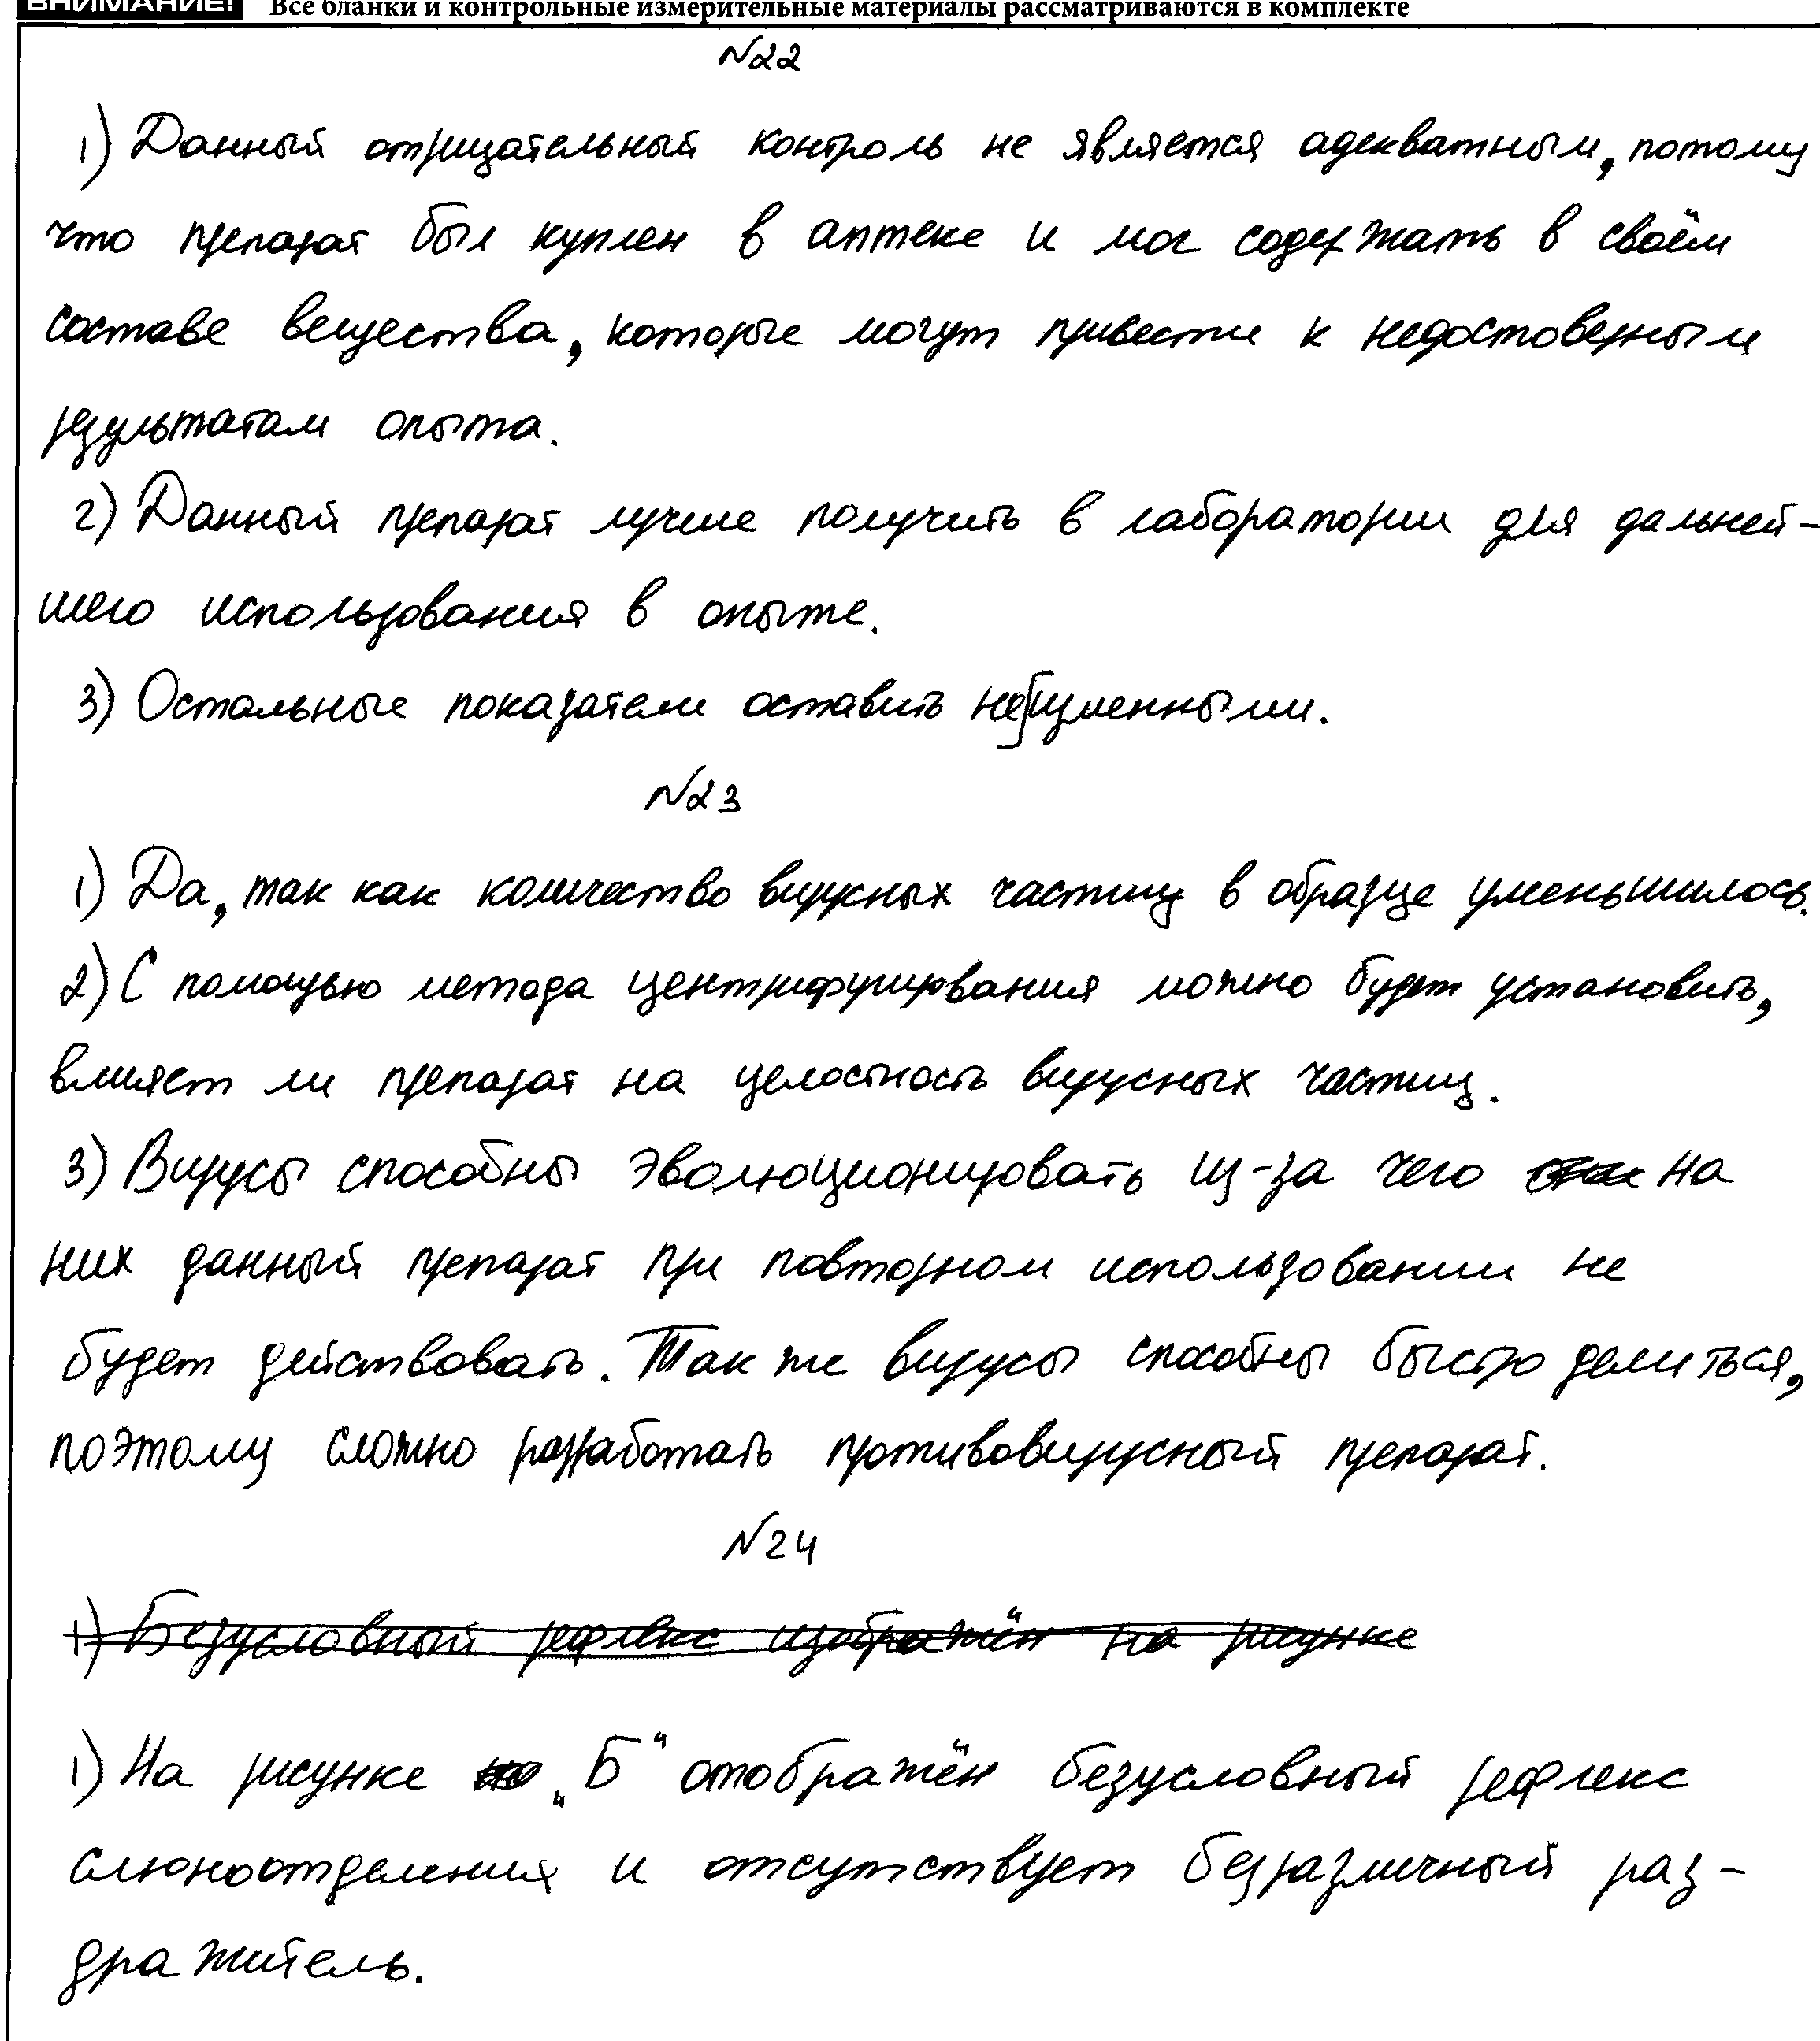 ВНИМАНИЕ! Все бланки и контрольные измерительные материалы рассматриваются в комплекте
№22
1) Данный отрицательный контроль не является адекватным, потому
что препарат был куплен в аптеке и мог содержать в своём
составе вещества, которые могут привести к недостоверным
результатам опыта.
2) Данный препарат лучше получить в лаборатории для дальней-
шего использования в опыте.
3) Остальные показатели оставить неизменными.
№23
1) Да, так как количество вирусных частиц в образце уменьшилось.
2) С помощью метода центрифугирования можно будет установить,
влияет ли препарат на целостность вирусных частиц.
3) Вирусы способны эволюционировать из-за чего на
них данный препарат при повторном использовании не
будет действовать. Так же вирусы способны быстро делиться,
поэтому сложно разработать противовирусный препарат.
№24
1) Безусловный рефлекс изображён на рисунке
1) На рисунке „Б“ отображён безусловный рефлекс
слюноотделения и отсутствует безразличный раз-
дражитель.